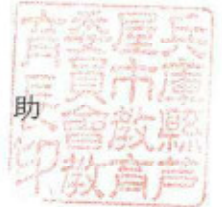 兵庫縣芦
屋市教育
委員會教
育長印
助